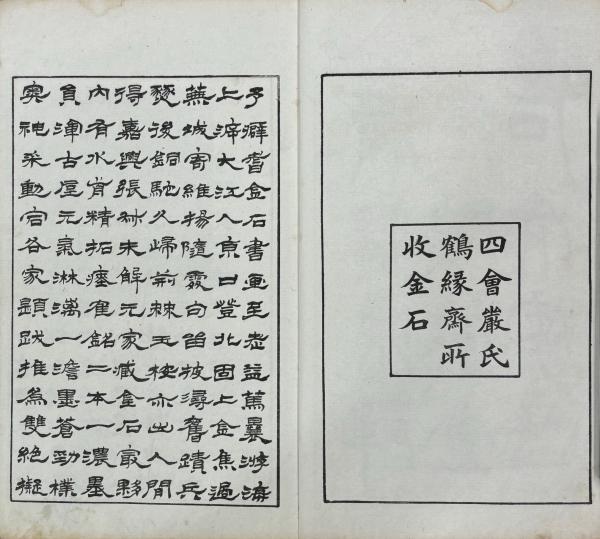 四會嚴氏
鶴緣齋所
收金石
予癖耆金石書畫至老益篤曩游海
上泝大江入京口登北固上金焦過
蕪城寄維揚隨處句留披潯舊蹟兵
燹後銅駝久歸荊棘玉椀亦出人間
得嘉興張尗未解元家藏金石最夥
內有水前精拓瘞隺銘二本一濃墨
負渾古厚元氣淋漓一澹墨蒼勁樸
奧神采動宕各家題跋推為雙絕擬